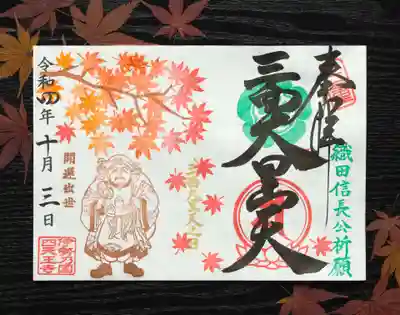 奉拝
織田信長公祈願
三面大黒天
開運出世
令和四年十月三日
伊勢乃国
四天王寺